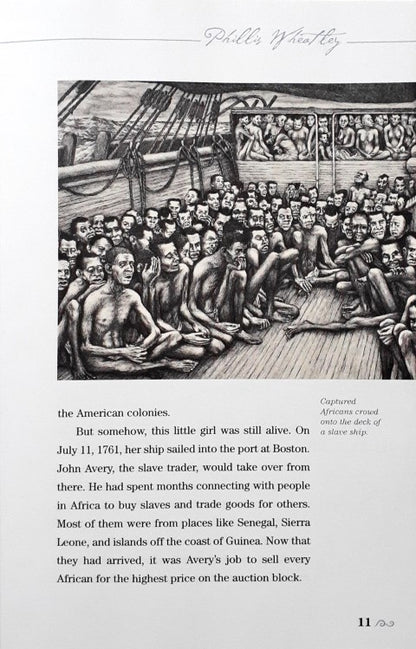 Phillis Wheatley
Captured
Africans crowd
onto the deck of
a slave ship.
the American colonies.
But somehow, this little girl was still alive. On
July 11, 1761, her ship sailed into the port at Boston.
John Avery, the slave trader, would take over from
there. He had spent months connecting with people
in Africa to buy slaves and trade goods for others.
Most of them were from places like Senegal, Sierra
Leone, and islands off the coast of Guinea. Now that
they had arrived, it was Avery's job to sell every
African for the highest price on the auction block.
11